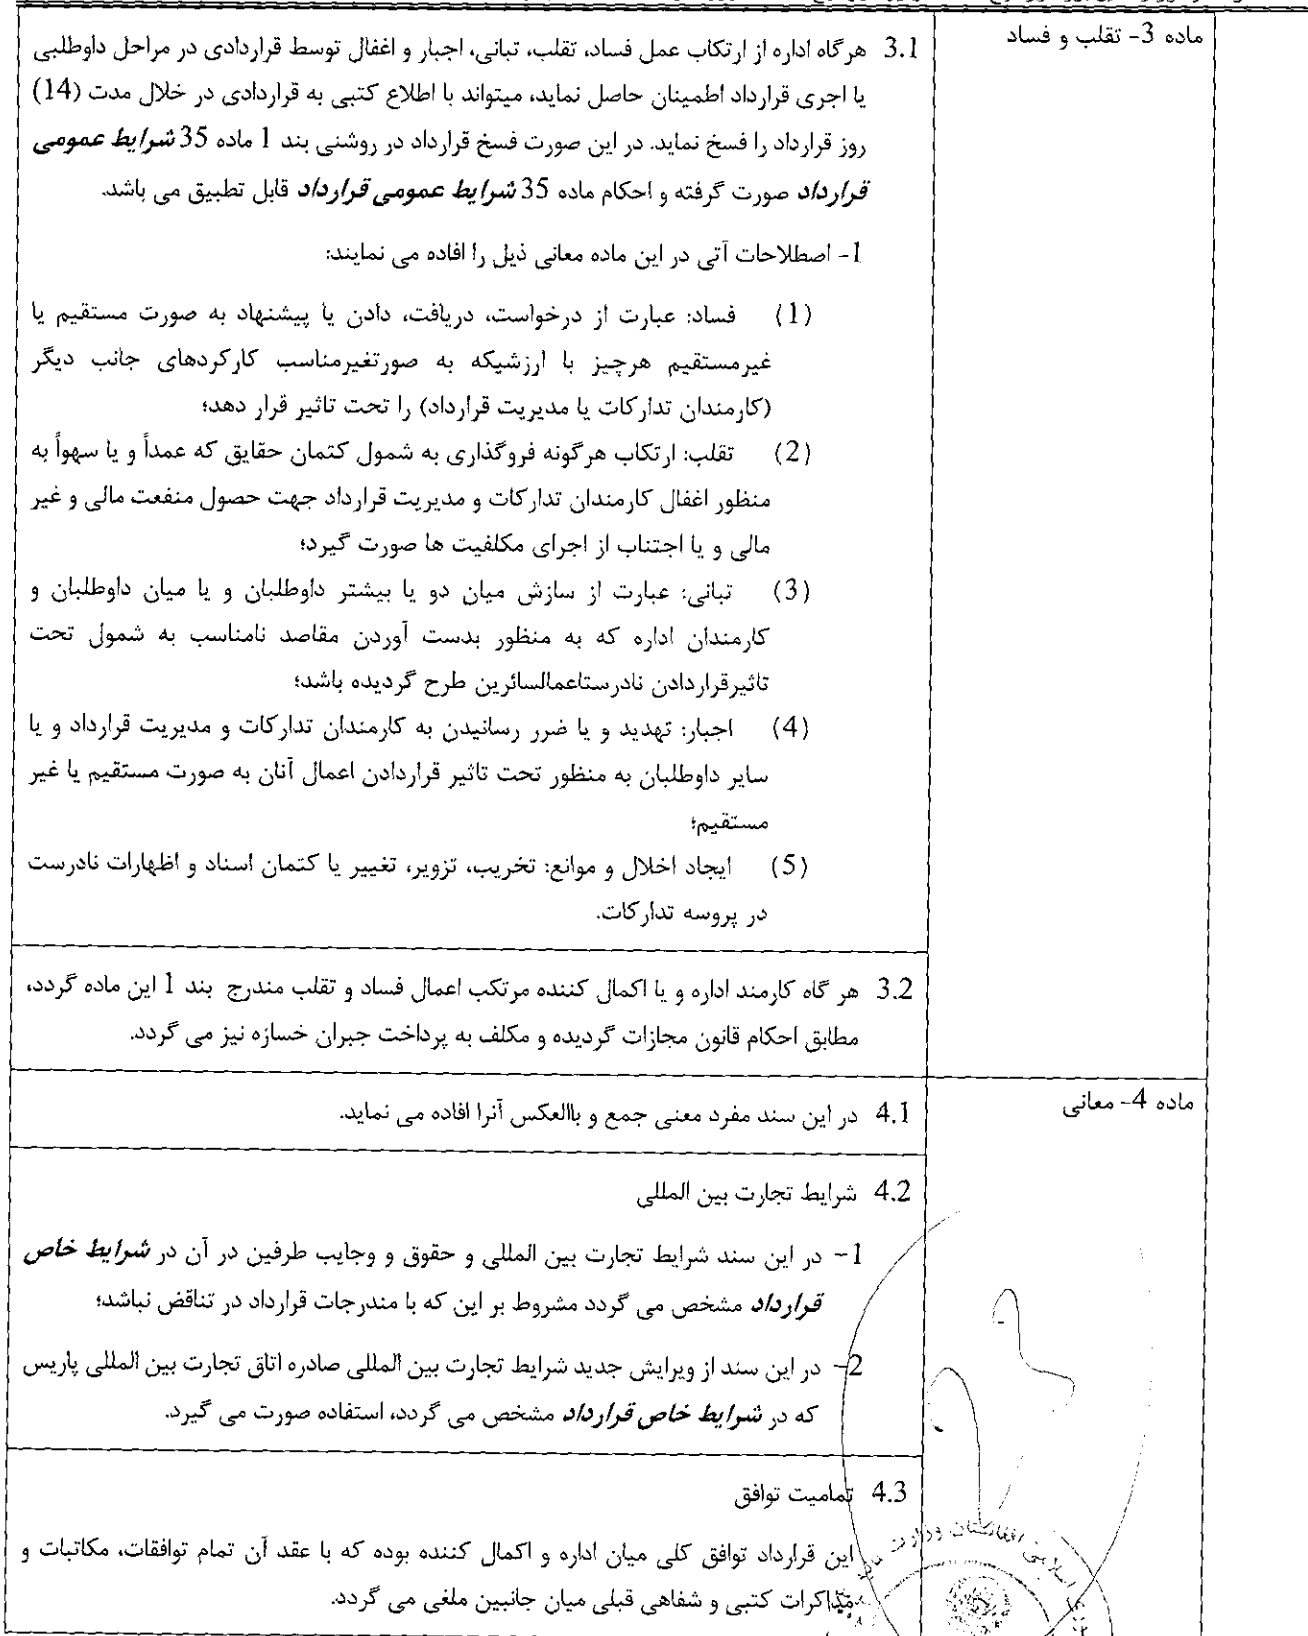 ماده 3- تقلب و فساد
3.1 هرگاه اداره از ارتکاب عمل فساد، تقلب، تبانی، اجبار و اغفال توسط قراردادی در مراحل داوطلبی
یا اجری قرارداد اطمینان حاصل نماید، میتواند با اطلاع کتبی به قراردادی در خلال مدت (14)
روز قرارداد را فسخ نماید. در این صورت فسخ قرارداد در روشنی بند 1 ماده 35 شرایط عمومی
قرارداد صورت گرفته و احکام ماده 35 شرایط عمومی قرارداد قابل تطبیق می باشد.
1- اصطلاحات آتی در این ماده معانی ذیل را افاده می نمایند:
(1) فساد: عبارت از درخواست، دریافت، دادن یا پیشنهاد به صورت مستقیم یا
غیرمستقیم هرچیز با ارزشیکه به صورتغیرمناسب کارکردهای جانب دیگر
(کارمندان تدارکات یا مدیریت قرارداد) را تحت تاثیر قرار دهد؛
(2) تقلب: ارتکاب هرگونه فروگذاری به شمول کتمان حقایق که عمداً و یا سهواً به
منظور اغفال کارمندان تدارکات و مدیریت قرارداد جهت حصول منفعت مالی و غیر
مالی و یا اجتناب از اجرای مکلفیت ها صورت گیرد؛
(3) تبانی: عبارت از سازش میان دو یا بیشتر داوطلبان و یا میان داوطلبان و
کارمندان اداره که به منظور بدست آوردن مقاصد نامناسب به شمول تحت
تاثیرقراردادن نادرستاعمالسائرین طرح گردیده باشد؛
(4) اجبار: تهدید و یا ضرر رسانیدن به کارمندان تدارکات و مدیریت قرارداد و یا
سایر داوطلبان به منظور تحت تاثیر قراردادن اعمال آنان به صورت مستقیم یا غیر
مستقیم؛
(5) ایجاد اخلال و موانع: تخریب، تزویر، تغییر یا کتمان اسناد و اظهارات نادرست
در پروسه تدارکات.
3.2 هر گاه کارمند اداره و یا اکمال کننده مرتکب اعمال فساد و تقلب مندرج بند 1 این ماده گردد،
مطابق احکام قانون مجازات گردیده و مکلف به پرداخت جبران خسازه نیز می گردد.
ماده 4- معانی
4.1 در این سند مفرد معنی جمع و باالعکس آنرا افاده می نماید.
4.2 شرایط تجارت بین المللی
1- در این سند شرایط تجارت بین المللی و حقوق و وجایب طرفین در آن در شرایط خاص
قرارداد مشخص می گردد مشروط بر این که با مندرجات قرارداد در تناقض نباشد؛
2- در این سند از ویرایش جدید شرایط تجارت بین المللی صادره اتاق تجارت بین المللی پاریس
که در شرایط خاص قرارداد مشخص می گردد، استفاده صورت می گیرد.
4.3 تمامیت توافق
این قرارداد توافق کلی میان اداره و اکمال کننده بوده که با عقد آن تمام توافقات، مکاتبات و
مذاکرات کتبی و شفاهی قبلی میان جانبین ملغی می گردد.
افغانستان وزارت